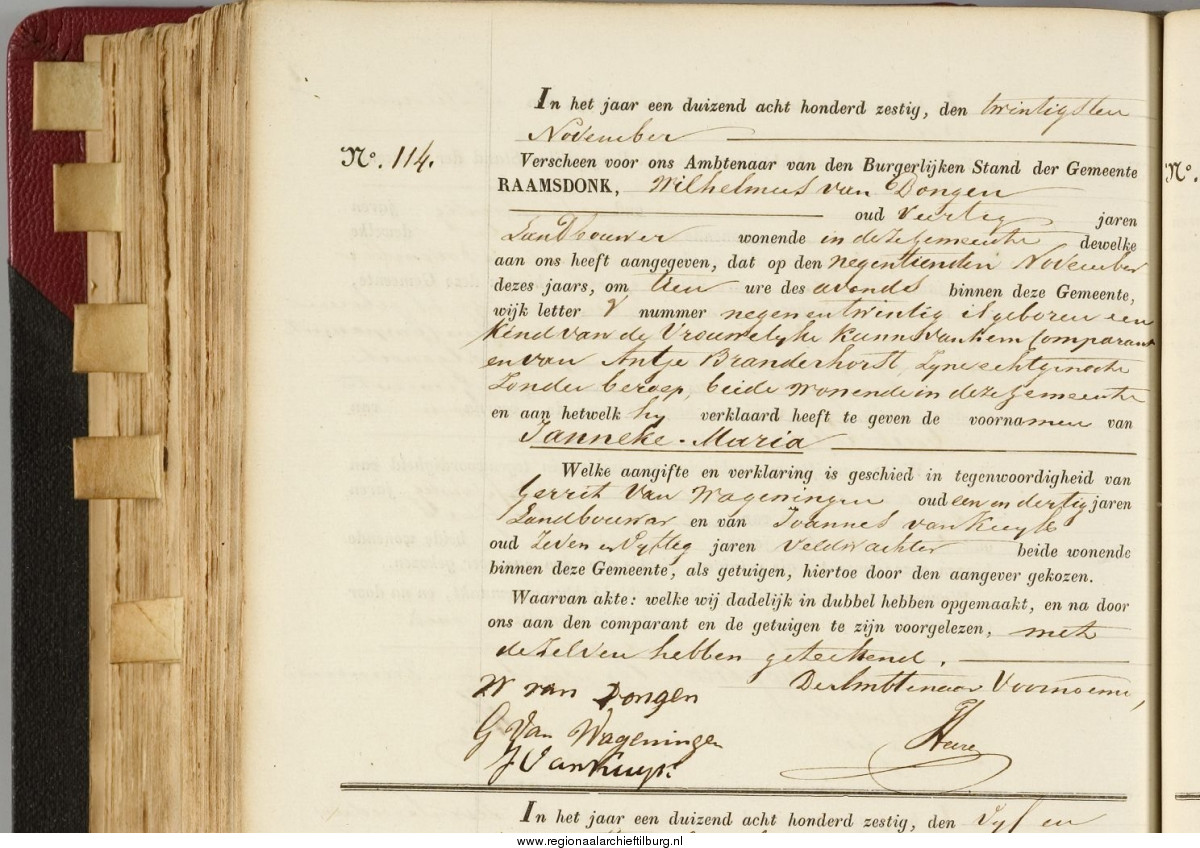 In het jaar een duizend acht honderd zestig, den twintigsten
November
N°. 114.
Verscheen voor ons Ambtenaar van den Burgerlijken Stand der Gemeente
RAAMSDONK, Wilhelmus van Dongen
oud veertig jaren
Landbouwer wonende in deze gemeente dewelke
aan ons heeft aangegeven, dat op den negentienden November
dezes jaars, om tien ure des avonds binnen deze Gemeente,
wijk letter nummer negenentwintig is geboren een
kind van de Vrouwelyke kunne van hem Comparant
en van Antje Branderhorst, zyne echtgenoote
Zonder beroep, beide wonende in deze gemeente
en aan hetwelk hy verklaard heeft te geven de voornamen van
Janneke-Maria
Welke aangifte en verklaring is geschied in tegenwoordigheid van
Gerrit van Wageningen oud een en dertig jaren
Landbouwer en van Joannes van Kuyk
oud zeven en vyftig jaren veldwachter beide wonende
binnen deze Gemeente, als getuigen, hiertoe door den aangever gekozen.
Waarvan akte: welke wij dadelijk in dubbel hebben opgemaakt, en na door
ons aan den comparant en de getuigen te zijn voorgelezen, met
dezelven hebben geteekend.
W van Dongen
De Ambtenaar Voornoemd,
G Van Wageningen
J Van Kuyk
In het jaar een duizend acht honderd zestig, den vyf en
N°.
www.regionaalarchieftilburg.nl